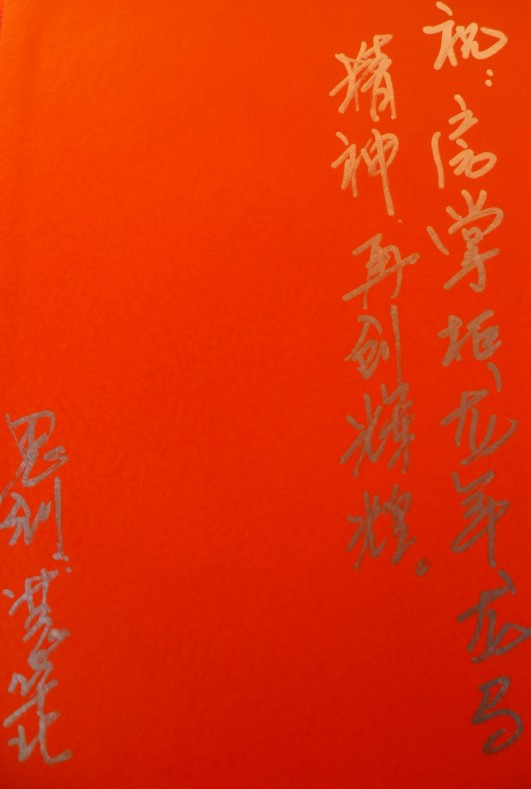 祝:高掌柜、龙年龙马
精神 再创辉煌。
思创: